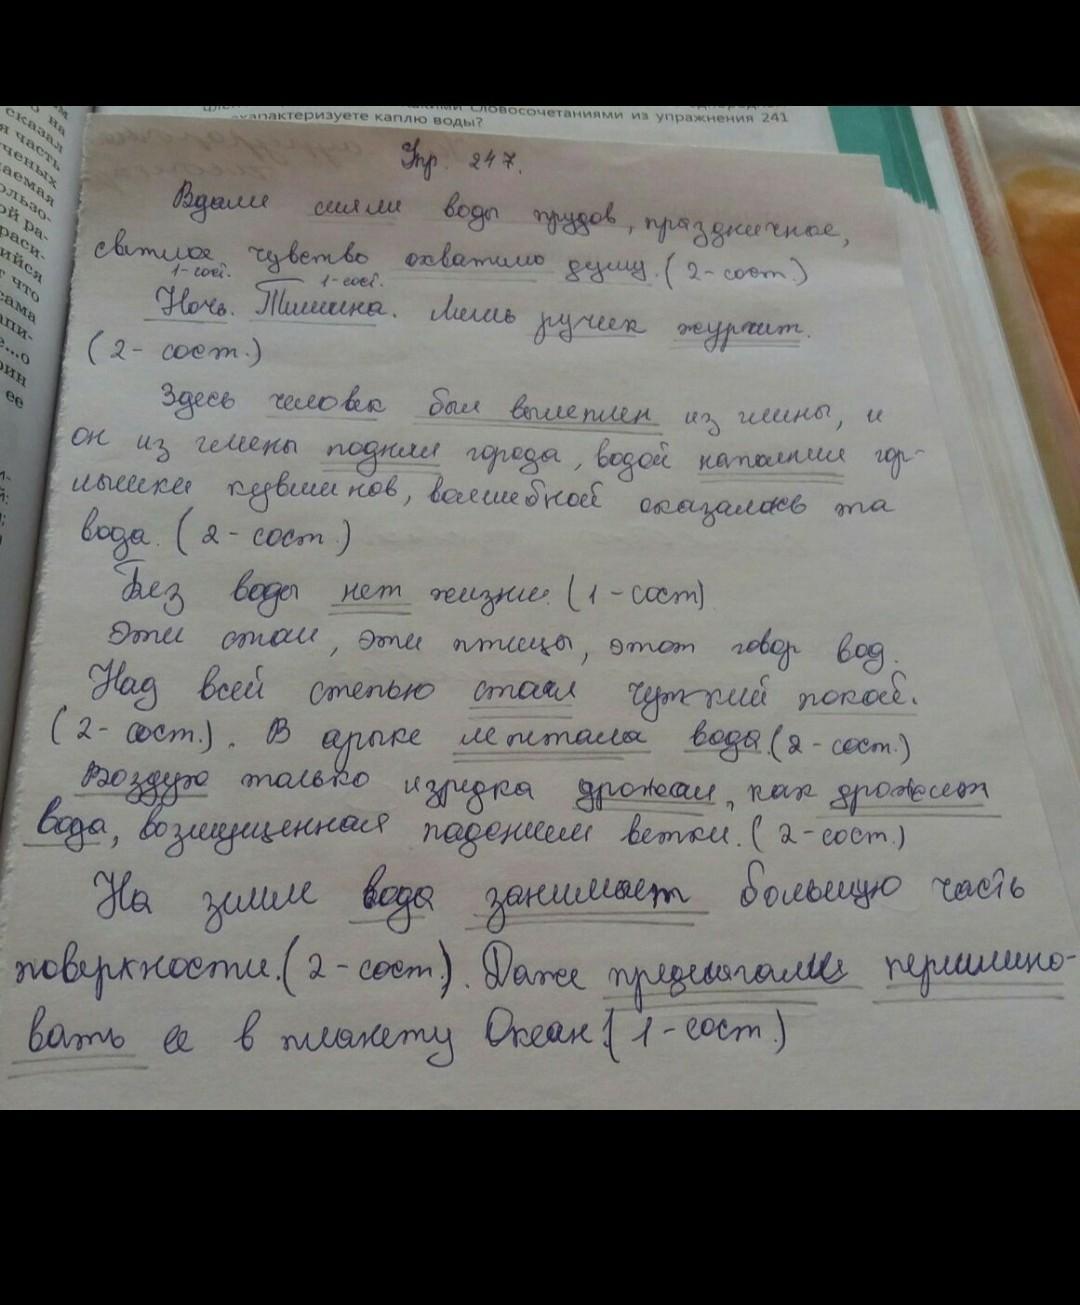 сказал
на
я часть
ченых
аемая
ользо-
ой ра-
раси-
ийся
т что
сама
апи-
е...о
рин
ее
словосочетаниями из упражнения 241
характеризуете каплю воды?
Упр. 247.
Вдали сияли воды прудов, праздничное,
светлое чувство охватило душу. (2-сост.)
1-сост. 1-сост.
Ночь. Тишина. Лишь ручеек журчит.
(2-сост.)
Здесь человек был вылеплен из глины, и
он из глины поднял города, водой наполнил гор-
лышки кувшинов, волшебной оказалась та
вода. (2-сост.)
Без воды нет жизни. (1-сост)
Эти стаи, эти птицы, этот говор вод.
Над всей степью стоял чуткий покой.
(2-сост.). В арыке лептала вода. (2-сост.)
Воздух только изредка дрожал, как дрожит
вода, возмущенная падением ветки. (2-сост.)
На земле вода занимает большую часть
поверхности. (2-сост.). Даже предлагали переимено-
вать ее в планету Океан. (1-сост.)